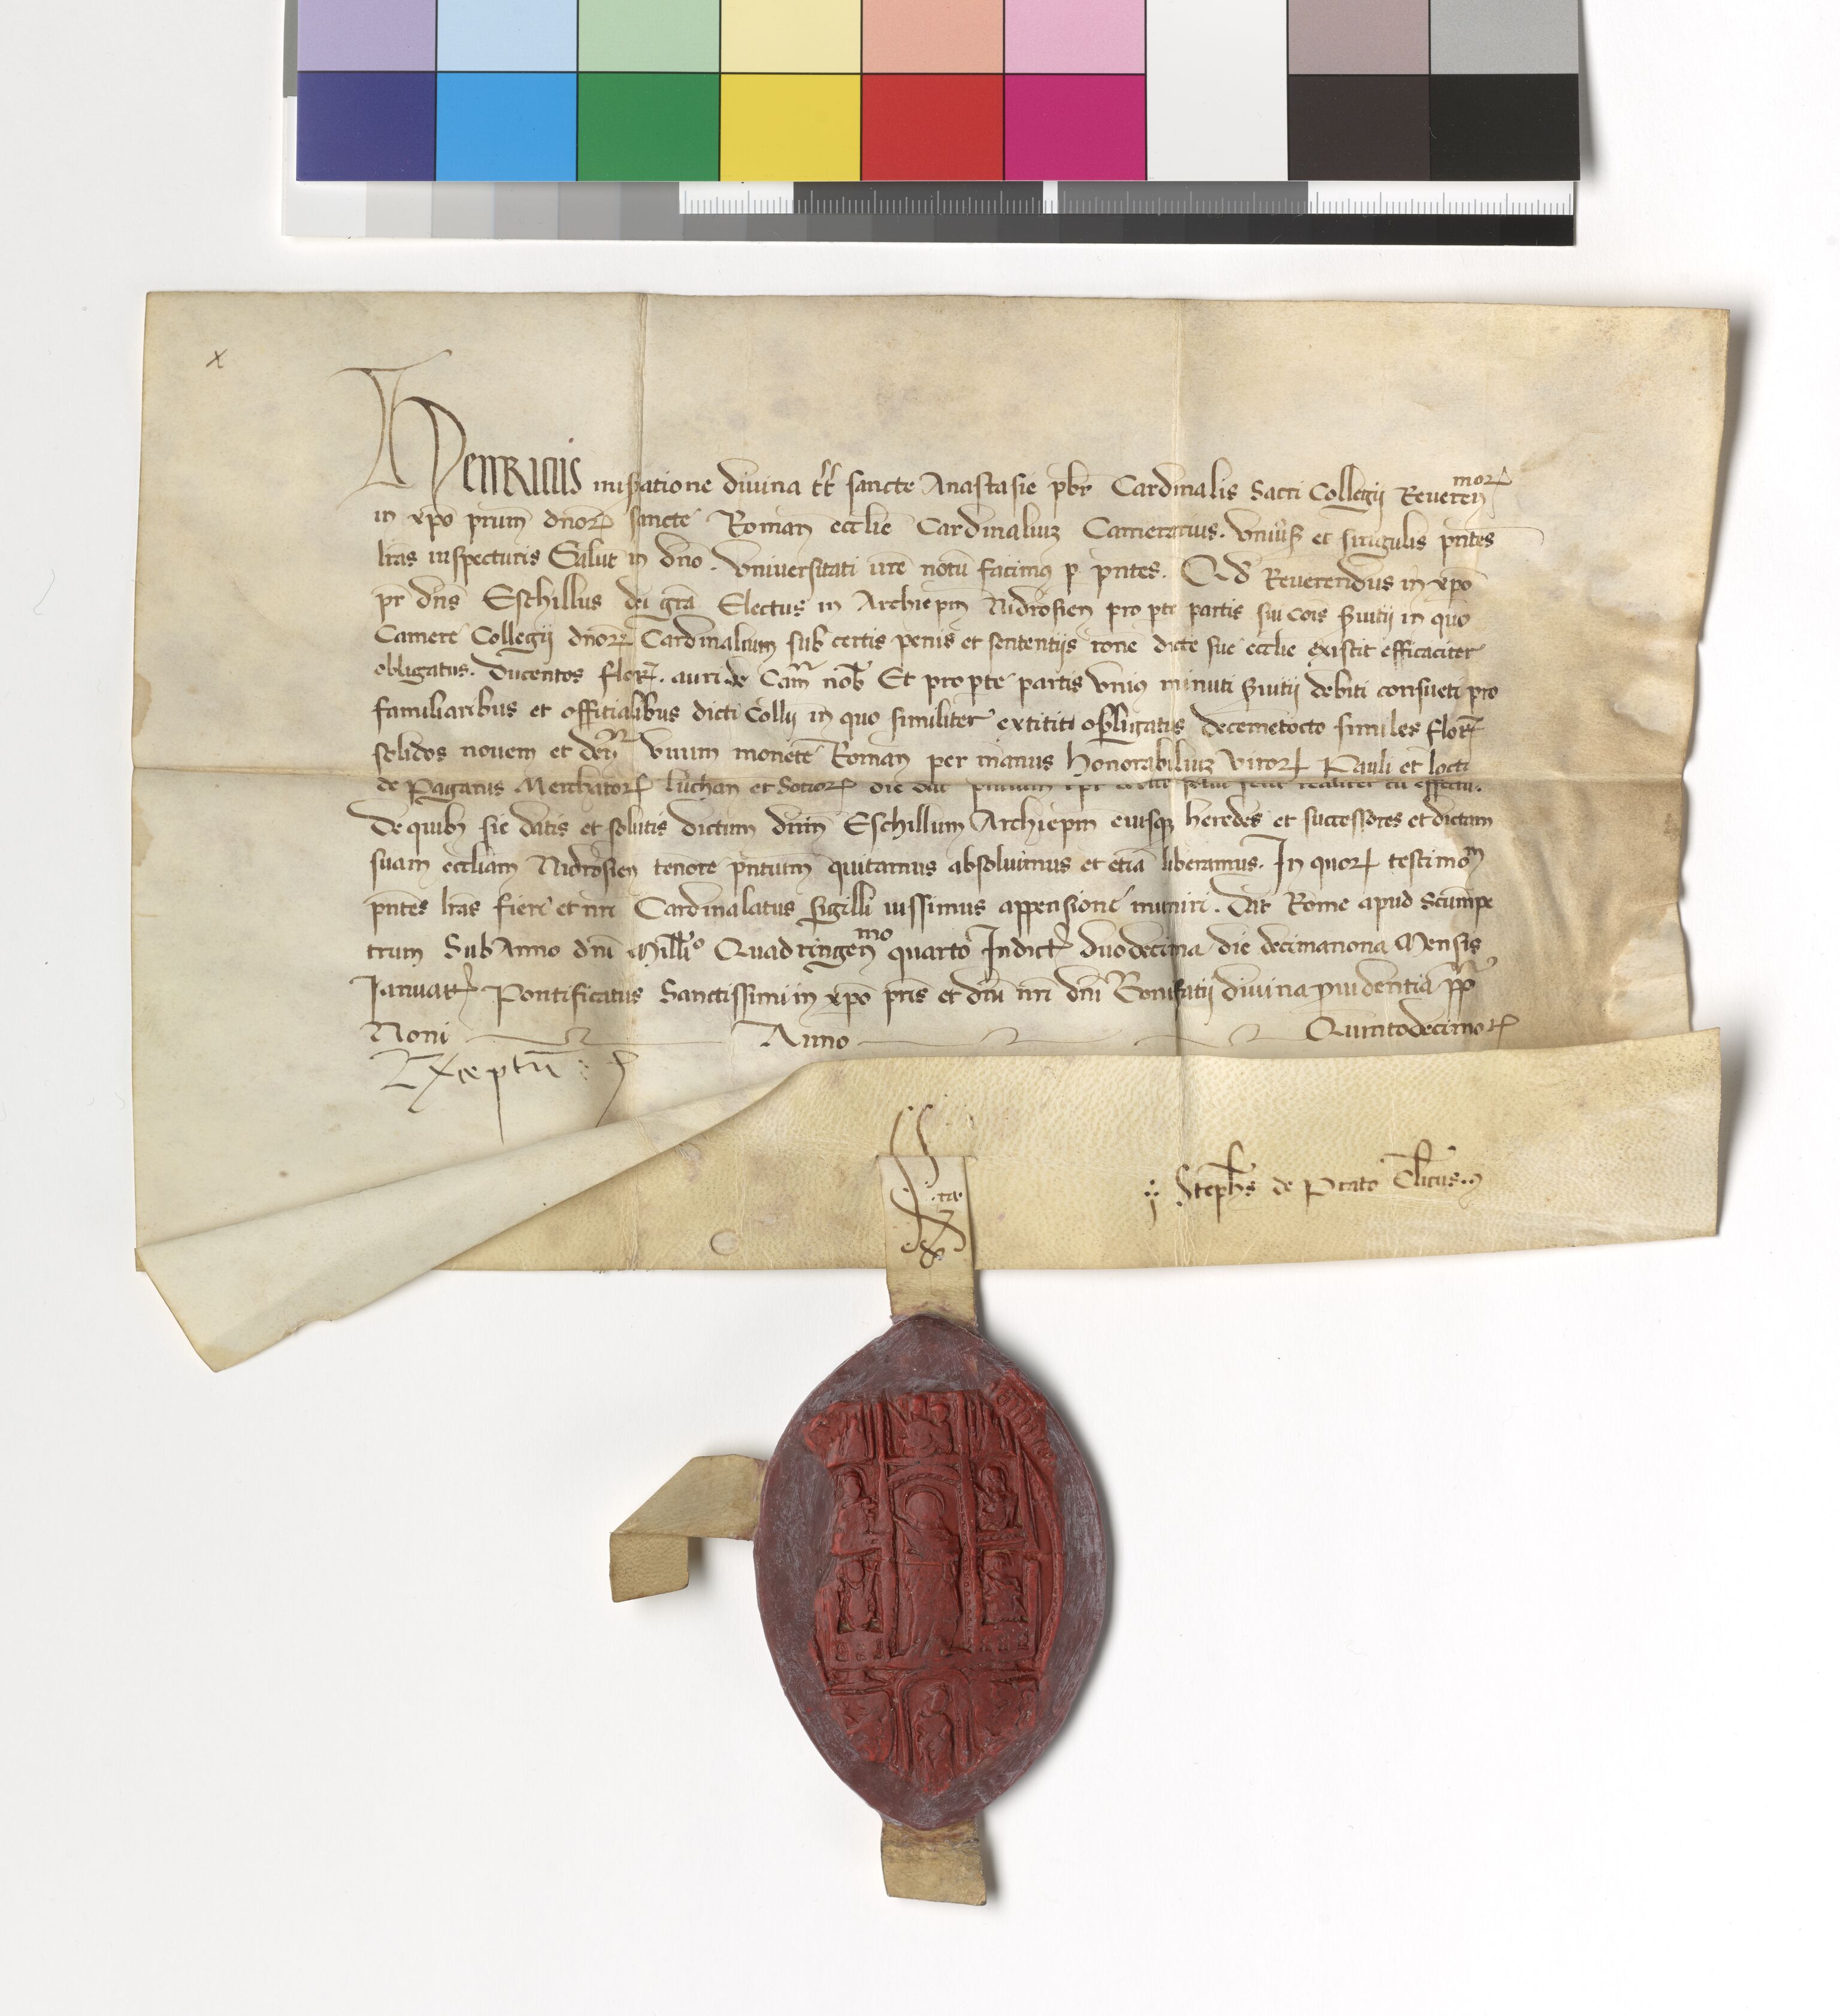 x
Henricus mis̄atione diuina tt̄ sancte Anastasie pb̄r Cardinalis Sacri Collegij Reueren̄ morꝝ
in xp̄o prum̄ dn̄orꝝ sancte Roman̄ ecc̄lie Cardinaliuꝫ Camerarius. Vniu̾s̄ et singulis pn̄tes
lr̄as inspecturis Salut̄ in dn̄o. Vniuersitati ur̄e notū facimꝰ p̱ pn̄tes. Qd̄ Reuerendus in xp̄o
pr̄ dn̄s Eschillus dei gr̄a Electus in Archiep̄m Nidrosien̄ pro pte partis sui cois S̾uitij in quo
Camere Collegij dn̄orꝝ Cardinalium sub certis penis et sententijs rone dicte sue ecc̄lie existit efficaciter
obligatus. Ducentos flor̄. auri de Cam̄ nob̄ Et pro pte partis vniꝰ minuti S̾uitij debiti consueti pro
familiaribus et offitialibus dicti Collij in quo similiter extitit obligatus decemetocto similes flor̄
solidos nouem et den̄ vnum monete Roman̄ per manus honorabiliuꝫ virorꝝ Pauli et
de Paganis Merchatorꝝ luchan̄ et Sotiorꝝ die dat̄ realiter cū effectu.
De quibꝫ sic datis et solutis dictum dn̄m Eschillum Archiep̄m eiusqꝫ heredes et successores et dictam
suam ecc̄liam Nidrosien̄ tenore pn̄tium quitamus absoluimus et etiā liberamus. In quorꝝ testimoᵐ
pn̄tes lr̄as fieri et nr̄i Cardinalatus sigilli iussimus appensione muniri. Dat̄ Rome apud Scūmpe
trum Sub Anno dn̄i Mill̄io Quadringen̄ᵐᵒ quarto Indict̄ duodecima die decimanona Mensis
Januar̄ Pontificatus Sanctissimi in xp̄o pr̄is et dn̄i nr̄i dn̄i Bonifatij diuina ꝓuidentia pp̄
Noni Anno Quintodecimo
Exceptū
Steph̄s de Prato Cl̄icus